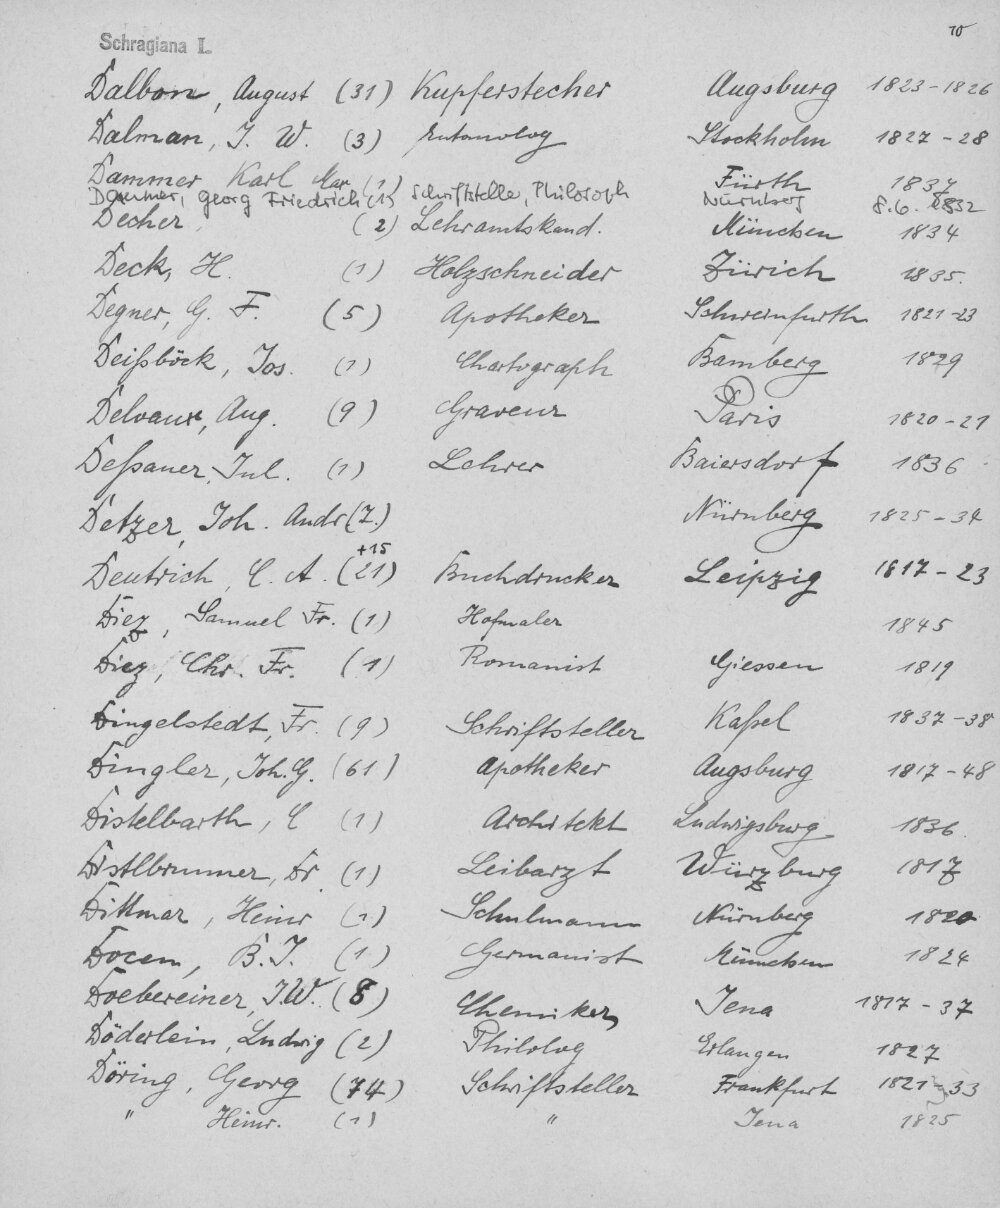 10
Schragiana I.
Dalbon, August (31) Kupferstecher Augsburg 1823-1826
Dalman, J. W. (3) Entomolog Stockholm 1827-28
Dammer Karl Max (1) Fürth 1837
Daumer, Georg Friedrich (1) Schriftstelle, Philosoph Nürnberg 8.6.1832
Decher, (2) Lehramtskand. München 1834
Deck, H. (1) Holzschneider Zürich 1835.
Degner, G. F. (5) Apotheker Schweinfurth 1821-23
Deißböck, Jos. (1) Chartograph Bamberg 1829
Delvaux, Aug. (9) Graveur Paris 1820-21
Deßauer, Jul. (1) Lehrer Baiersdorf 1836
Detzer, Joh. Andr (7.) Nürnberg 1825-34
+15
Deutrich, C. A. (21) Buchdrucker Leipzig 1817-23
Diez, Samuel Fr. (1) Hofmaler 1845
Diez, Chr. Fr. (1) Romanist Giessen 1819
Dingelstedt, Fr. (9) Schriftsteller Kaßel 1837-38
Dingler, Joh. G. (61) Apotheker Augsburg 1817-48
Distelbarth, C (1) Architekt Ludwigsburg 1836
Distlbrunner, Dr. (1) Leibarzt Würzburg 1817
Dittmar, Heinr (1) Schulmann Nürnberg 1820
Docen, B. J. (1) Germanist München 1824
Doebereiner, J. W. (8) Chemiker Jena 1817-37
Döderlein, Ludwig (2) Philolog Erlangen 1827
Döring, Georg (74) Schriftsteller Frankfurt 1821-33
" Heinr. (1) " Jena 1825